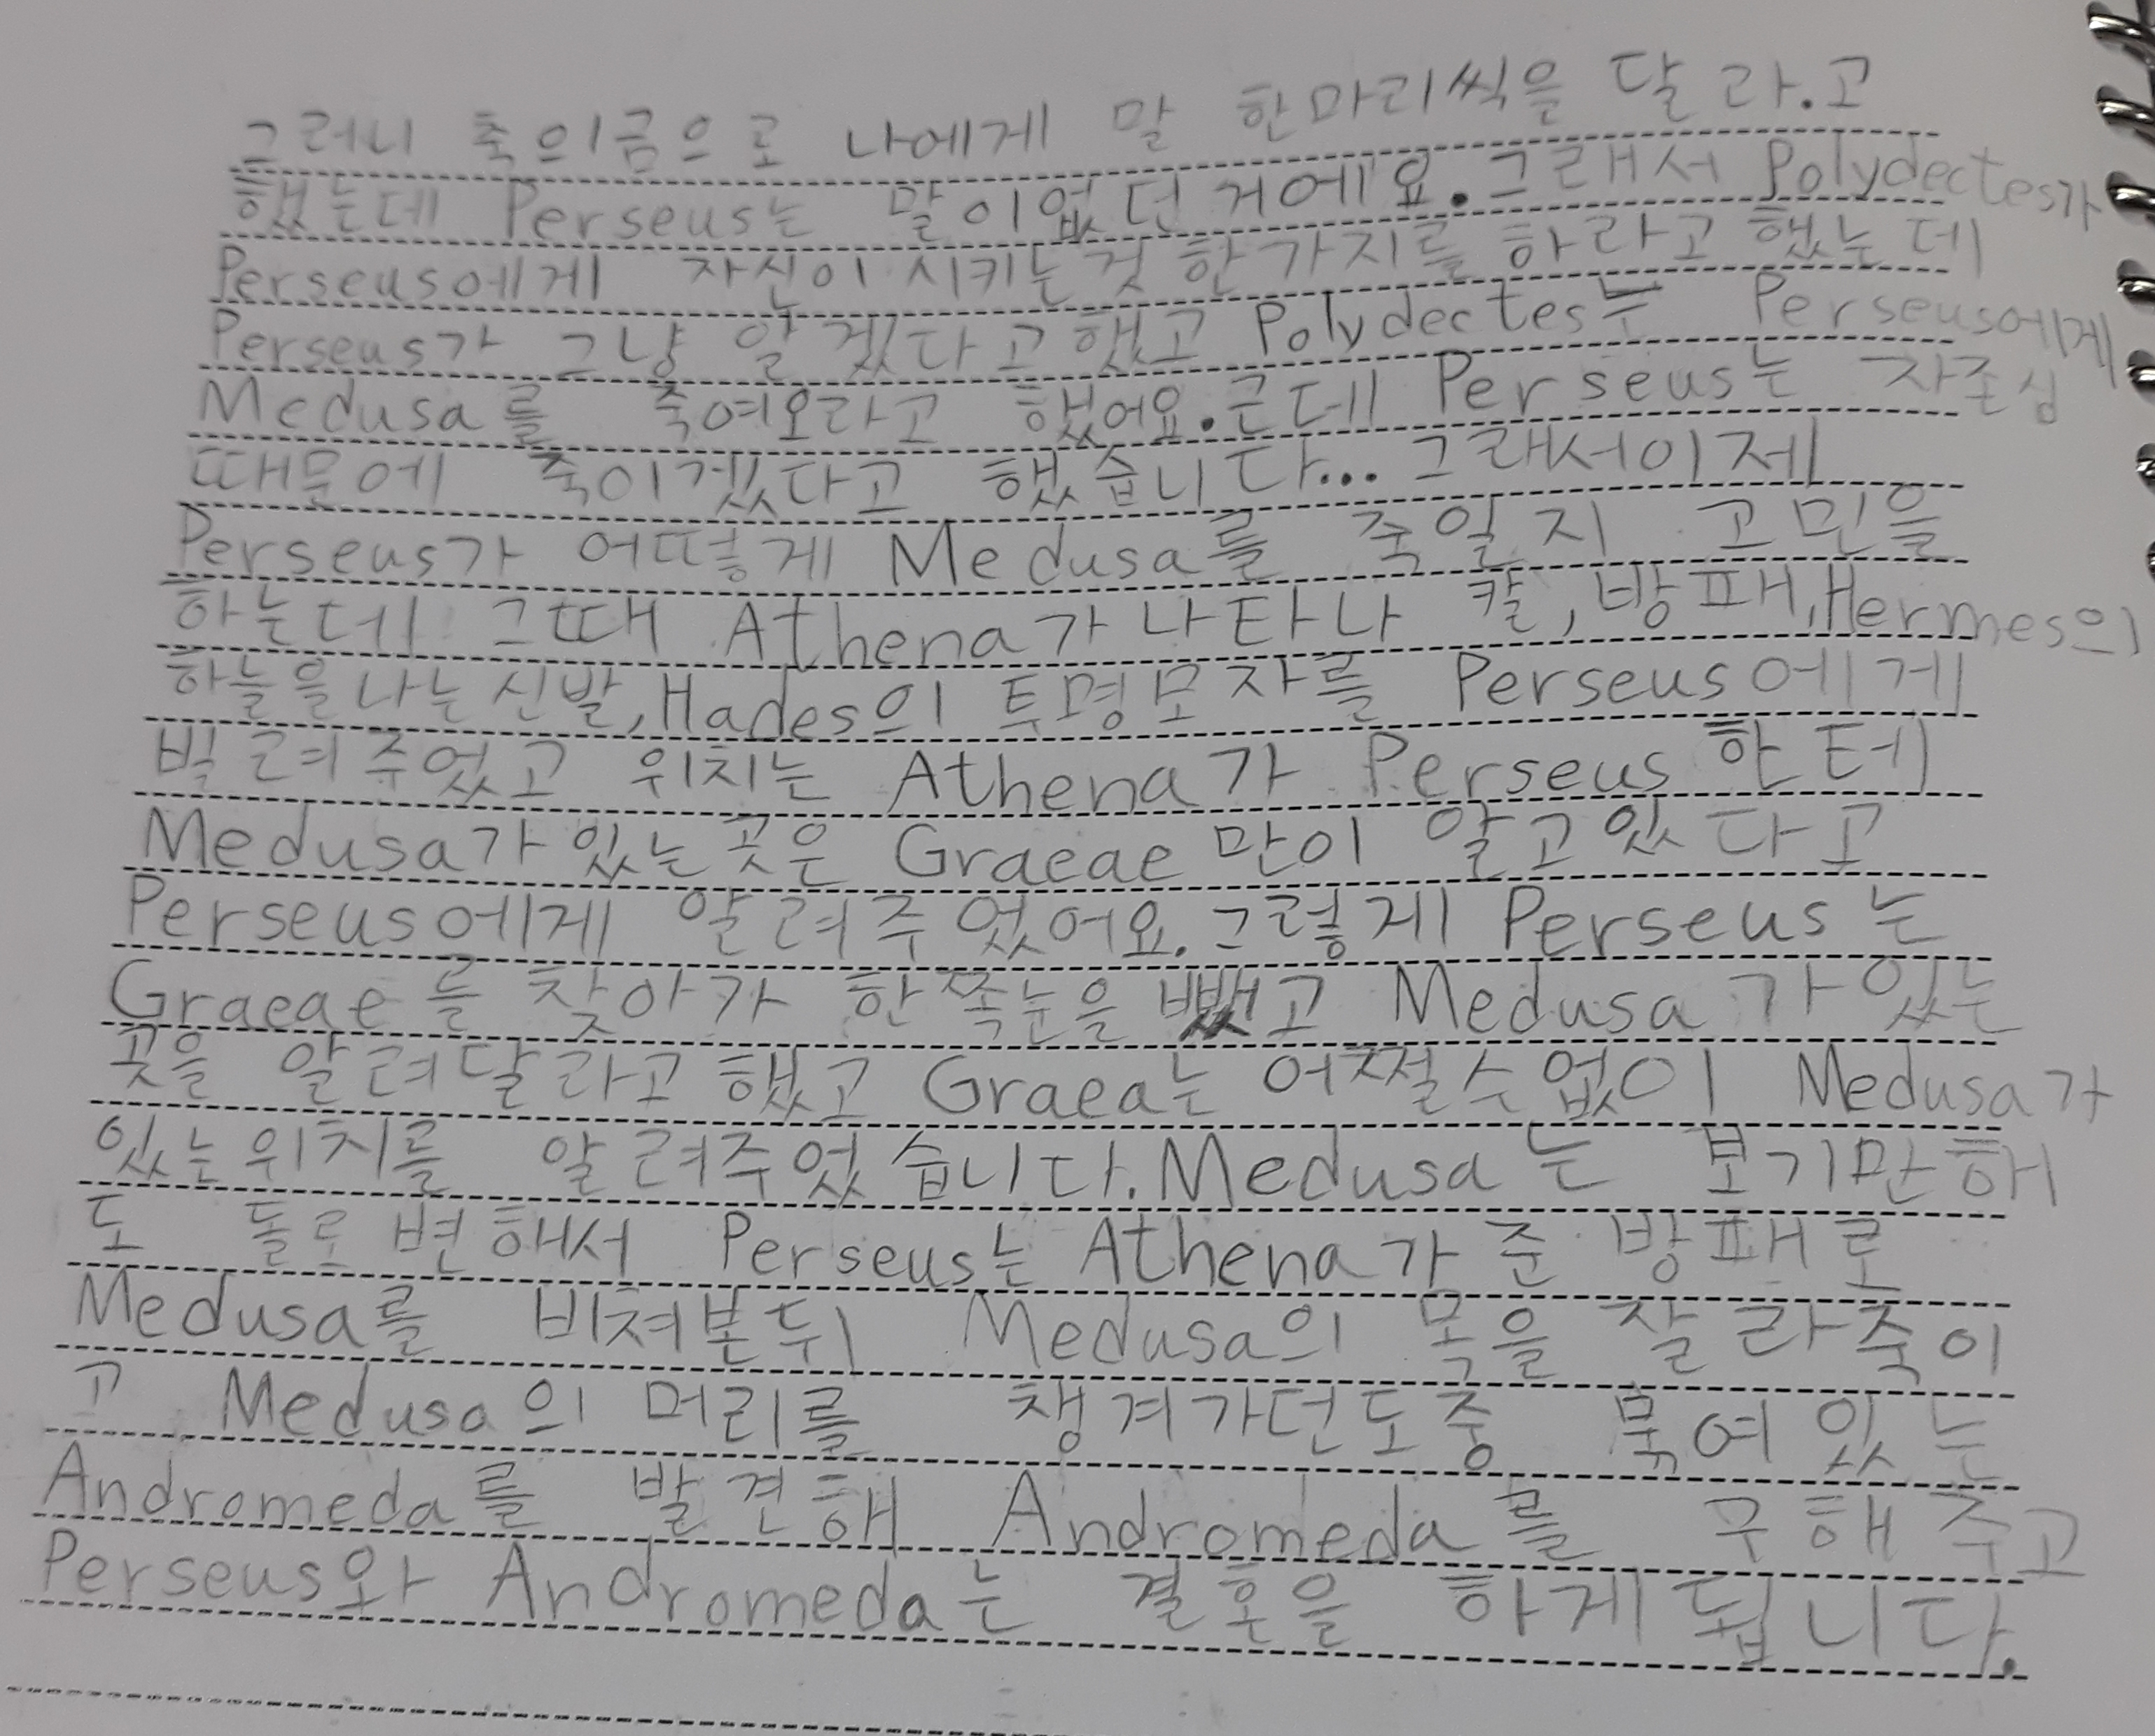 그러니 축의금으로 나에게 말 한마리씩을 달라.고
했는데 Perseus는 말이없던거에요.그래서 Polydectes가
Perseus에게 자신이 시키는것 한가지를 하라고 했는데
Perseus가 그냥 알겠다고했고 Polydectes는 Perseus에게
Medusa를 죽여오라고 했어요.근데 Perseus는 자존심
때문에 죽이겠다고 했습니다... 그래서이제
Perseus가 어떻게 Medusa를 죽일지 고민을
하는데 그때 Athena가 나타나 칼,방패,Hermes의
하늘을 나는 신발,Hades의 투명모자를 Perseus에게
빌려주었고 위치는 Athena가 Perseus한테
Medusa가 있는 곳은 Graeae만이 알고있다고
Perseus에게 알려주었어요.그렇게 Perseus는
Graeae를 찾아가 한쪽눈을 뺐고 Medusa가 있는
곳을 알려달라고 했고 Graea는 어쩔수없이 Medusa가
있는위치를 알려주었습니다.Medusa는 보기만해
도 돌로변해서 Perseus는 Athena가 준 방패로
Medusa를 비쳐본뒤 Medusa의 목을 잘라죽이
고 Medusa의 머리를 챙겨가던도중 묶여있는
Andromeda를 발견해 Andromeda를 구해주고
Perseus와 Andromeda는 결혼을 하게됩니다.